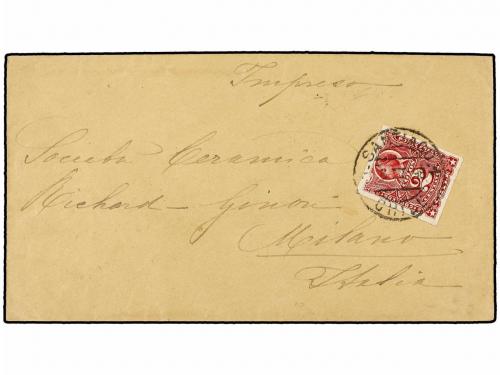 Impreso
Societa Ceramica
Richard - Ginori
Milano
Italia
SANTIAGO
2